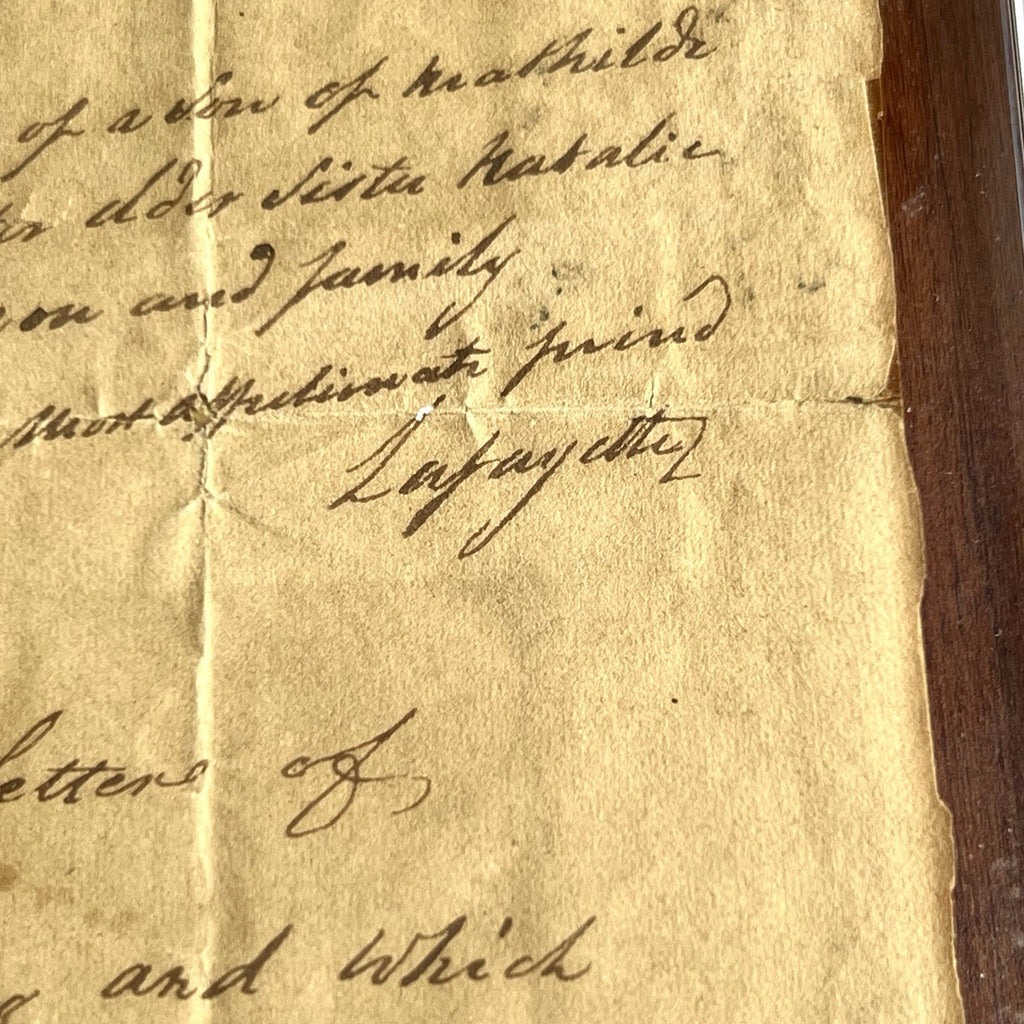 of a Son of Mathilde
elder Sister Natalie
and family
Most affectionate friend
Lafayette
letters of
and which